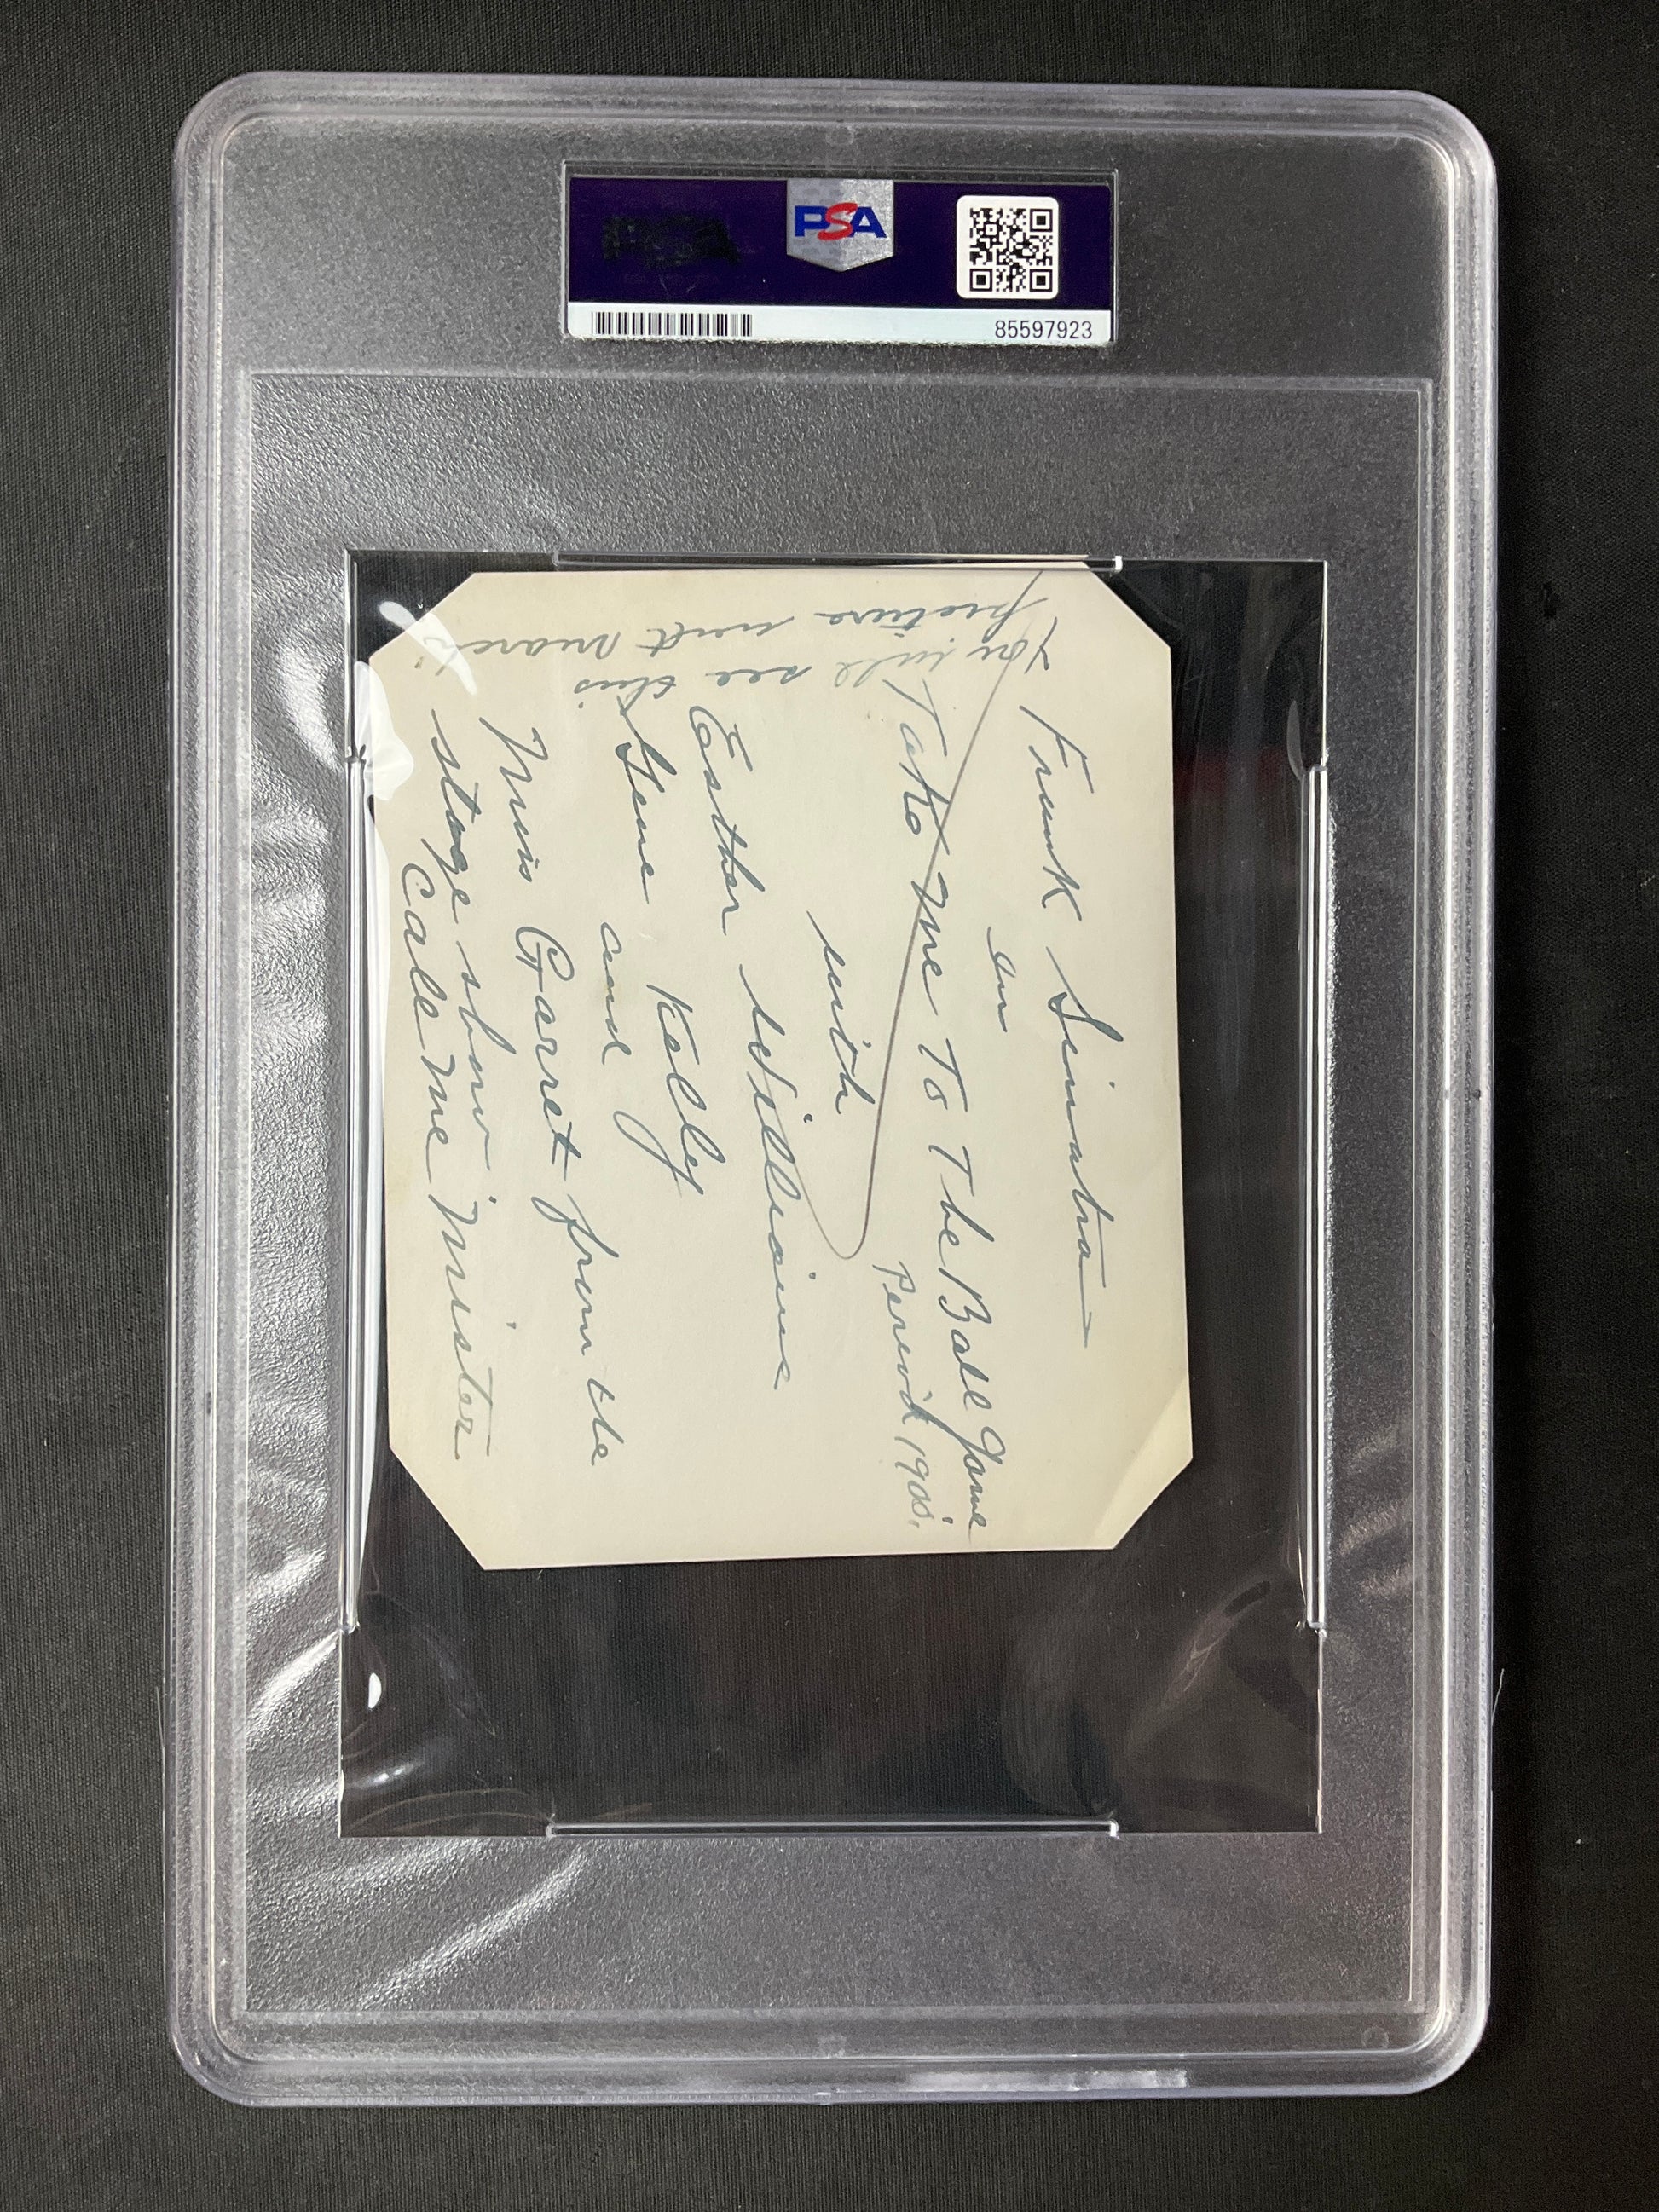 PSA
85597923
Frank Sinatra
in
Take Me To The Ball Game
Period, 1900.
with
Esther Williams
Gene Kelly
and
Miss Garret from the
stage show
Call Me Mister
You will see this
picture next March